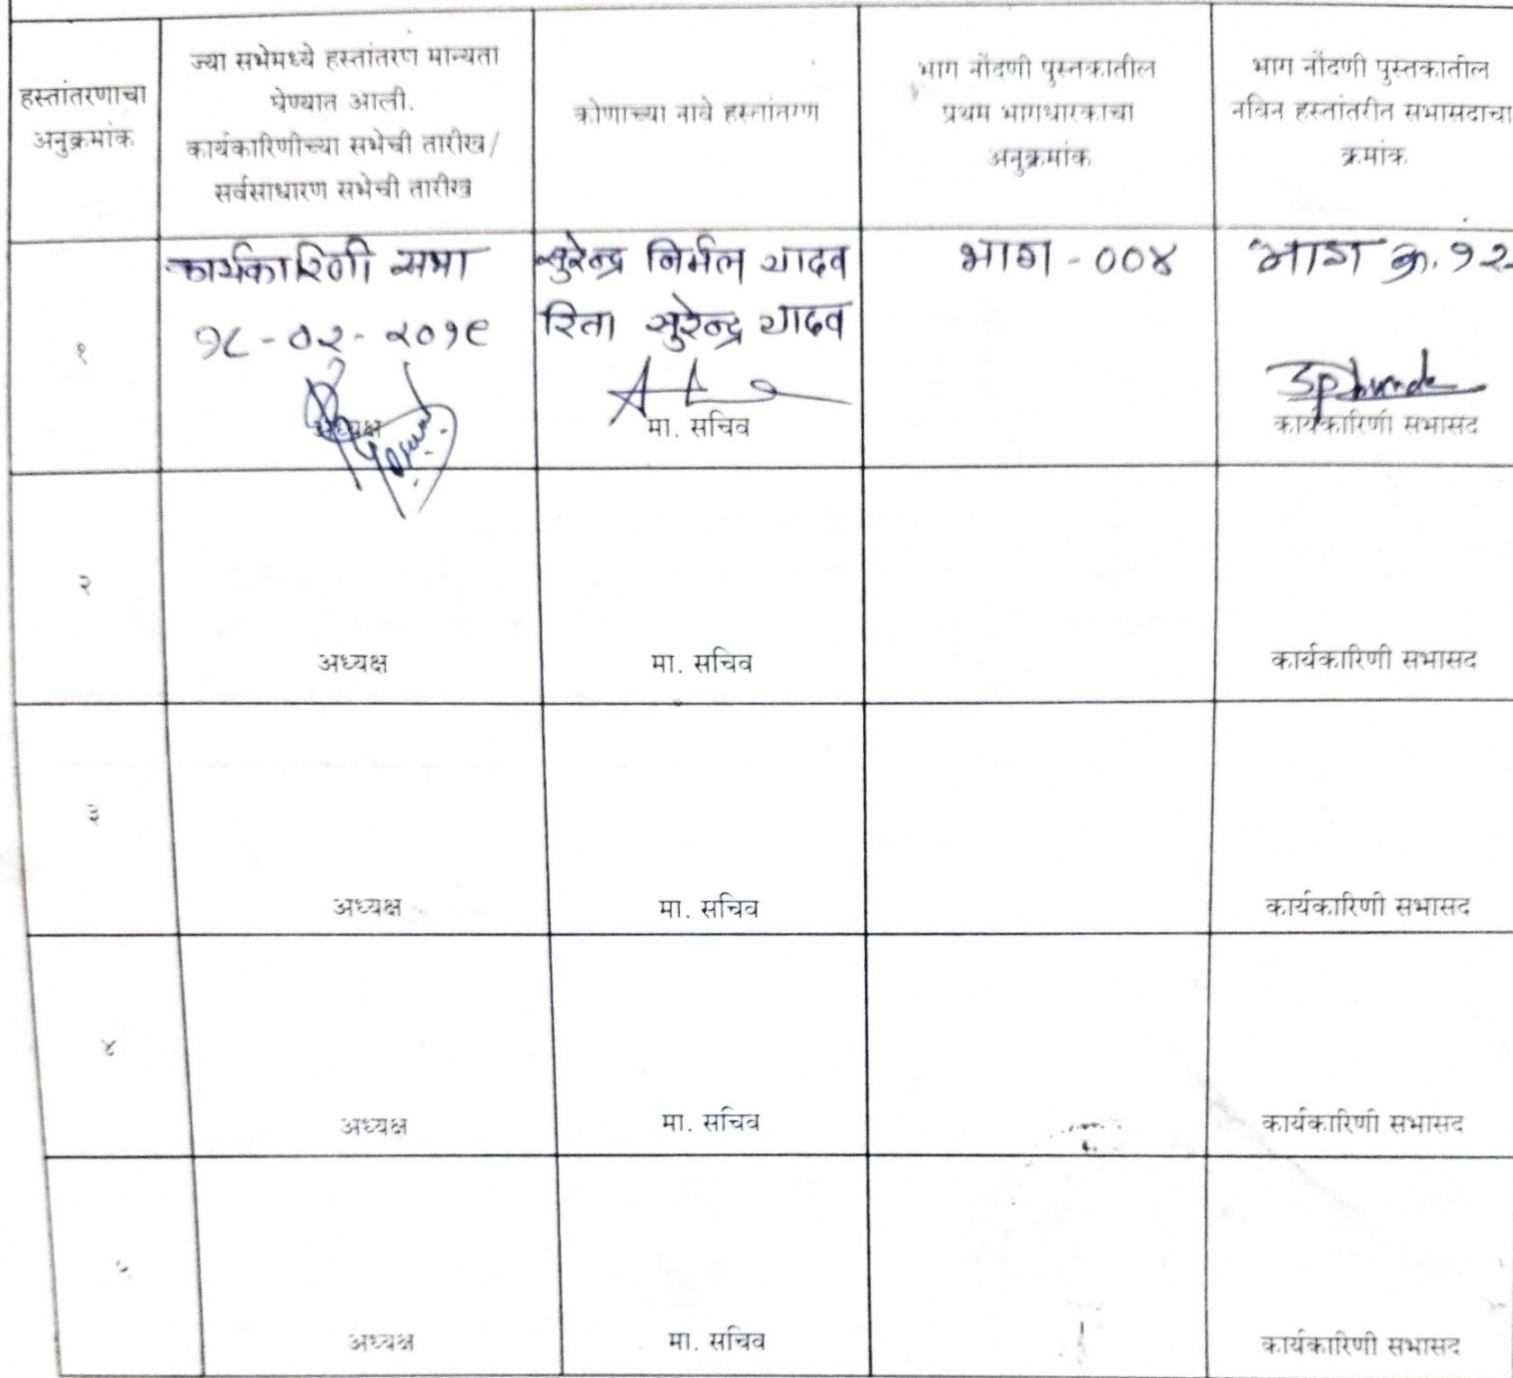 हस्तांतरणाचा
अनुक्रमांक
ज्या सभेमध्ये हस्तांतरण मान्यता
घेण्यात आली.
कार्यकारिणीच्या सभेची तारीख/
सर्वसाधारण सभेची तारीख
कोणाच्या नावे हस्तांतरण
भाग नोंदणी पुस्तकातील
प्रथम भागधारकाचा
अनुक्रमांक
भाग नोंदणी पुस्तकातील
नविन हस्तांतरीत सभासदाचा
क्रमांक
१
कार्यकारिणी सभा
१८-०२-२०१९
अध्यक्ष
सुरेन्द्र निर्मल यादव
रिता सुरेन्द्र यादव
मा. सचिव
भाग - ००४
भाग क्र. १२
कार्यकारिणी सभासद
२
अध्यक्ष
मा. सचिव
कार्यकारिणी सभासद
३
अध्यक्ष
मा. सचिव
कार्यकारिणी सभासद
४
अध्यक्ष
मा. सचिव
कार्यकारिणी सभासद
५
अध्यक्ष
मा. सचिव
कार्यकारिणी सभासद